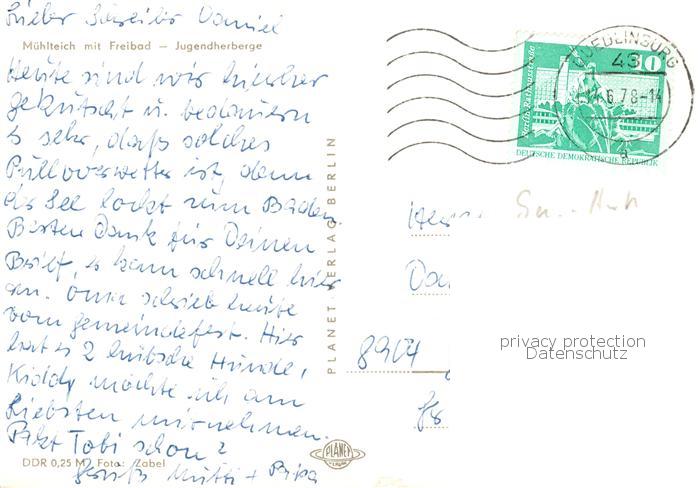 Lieber Schreiber Daniel
Mühlteich mit Freibad — Jugendherberge
Heute sind wir hierher
gekutscht u. bedauern
es sehr, daß solches
Pulloverwetter ist, denn
der See lockt zum Baden.
Besten Dank für Deinen
Brief, es kam schnell hier
an. Oma schrieb heute
vom Gemeindefest. Hier
hat es 2 hübsche Hunde,
Kiddy möchte ich am
Liebsten mitnehmen.
Tobi schon?
Gruß Mutti + Papa
DDR 0,25 M Foto: Zabel
PLANET-VERLAG BERLIN
PLANET
QUEDLINBURG
43
6.78-14
a
10
Berlin, Rathausstraße
DEUTSCHE DEMOKRATISCHE REPUBLIK
8904
privacy protection
Datenschutz